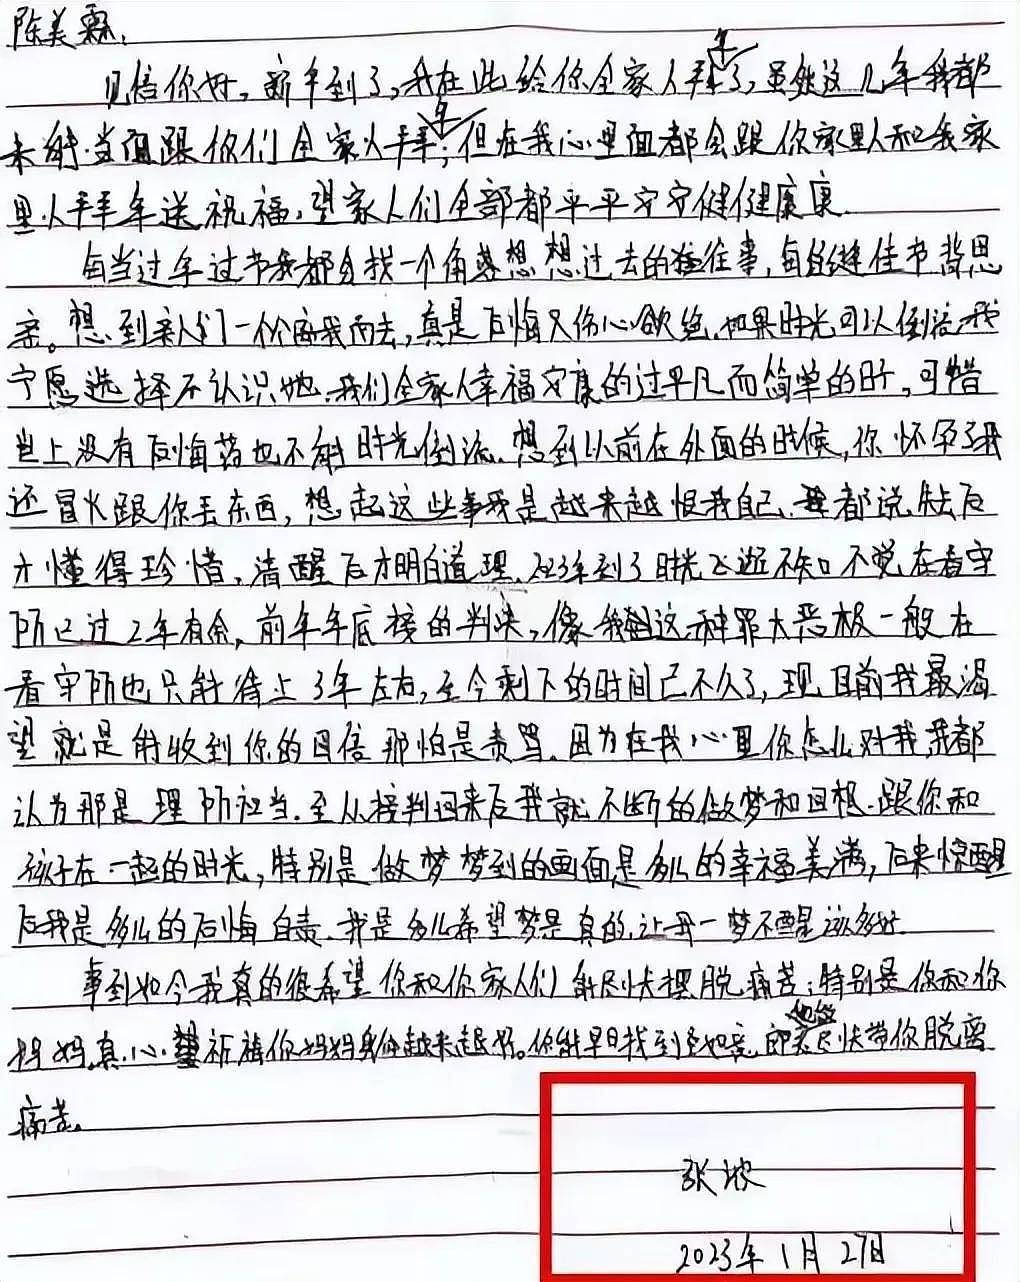 陈美霖:
见信你好,新年到了,我在此给你全家人拜年了,虽然这几年我都
未能当面跟你们全家人拜年,但在我心里面都会跟你家里人和我家
里人拜拜年送祝福,望家人们全部都平平安安健健康康
每当过年过节我都会找一个角落想想过去的种往事,每逢佳节背思
亲。想到亲人们一个个离我而去,真是后悔又伤心欲绝,如果时光可以倒流,我
宁愿选择不认识她,我们全家人幸福安康的过平凡而简单的日子,可惜
世上没有后悔药也不能时光倒流.想到以前在外面的时候,你怀孕了我
还冒火跟你丢东西,想起这些事我是越来越恨我自己.我都说失去后
才懂得珍惜,清醒后才明白道理.到了时光飞逝不知不觉在看守
所已过2年有余,前年年底接的判决,像我们这种罪大恶极一般在
看守所也只能待上3年左右,至今剩下的时间已不久了,现目前我最渴
望就是能收到你的回信那怕是责骂.因为在我心里你怎么对我我都
认为那是理所祖当.至从接判回来后我就不断的做梦和回想.跟你和
孩子在一起的时光,特别是做梦梦到的画面是多么的幸福美满,后来惊醒
后我是多么的后悔自责.我是多么希望梦是真的,让我一梦不醒该多好.
事到如今我真的很希望你和你家人们能尽快摆脱痛苦;特别是你和你
妈妈,真心望祈祷你妈妈身体越来越好。你能早日找到如意郎君他能尽快带你脱离
痛苦。
张波
2023年1月27日